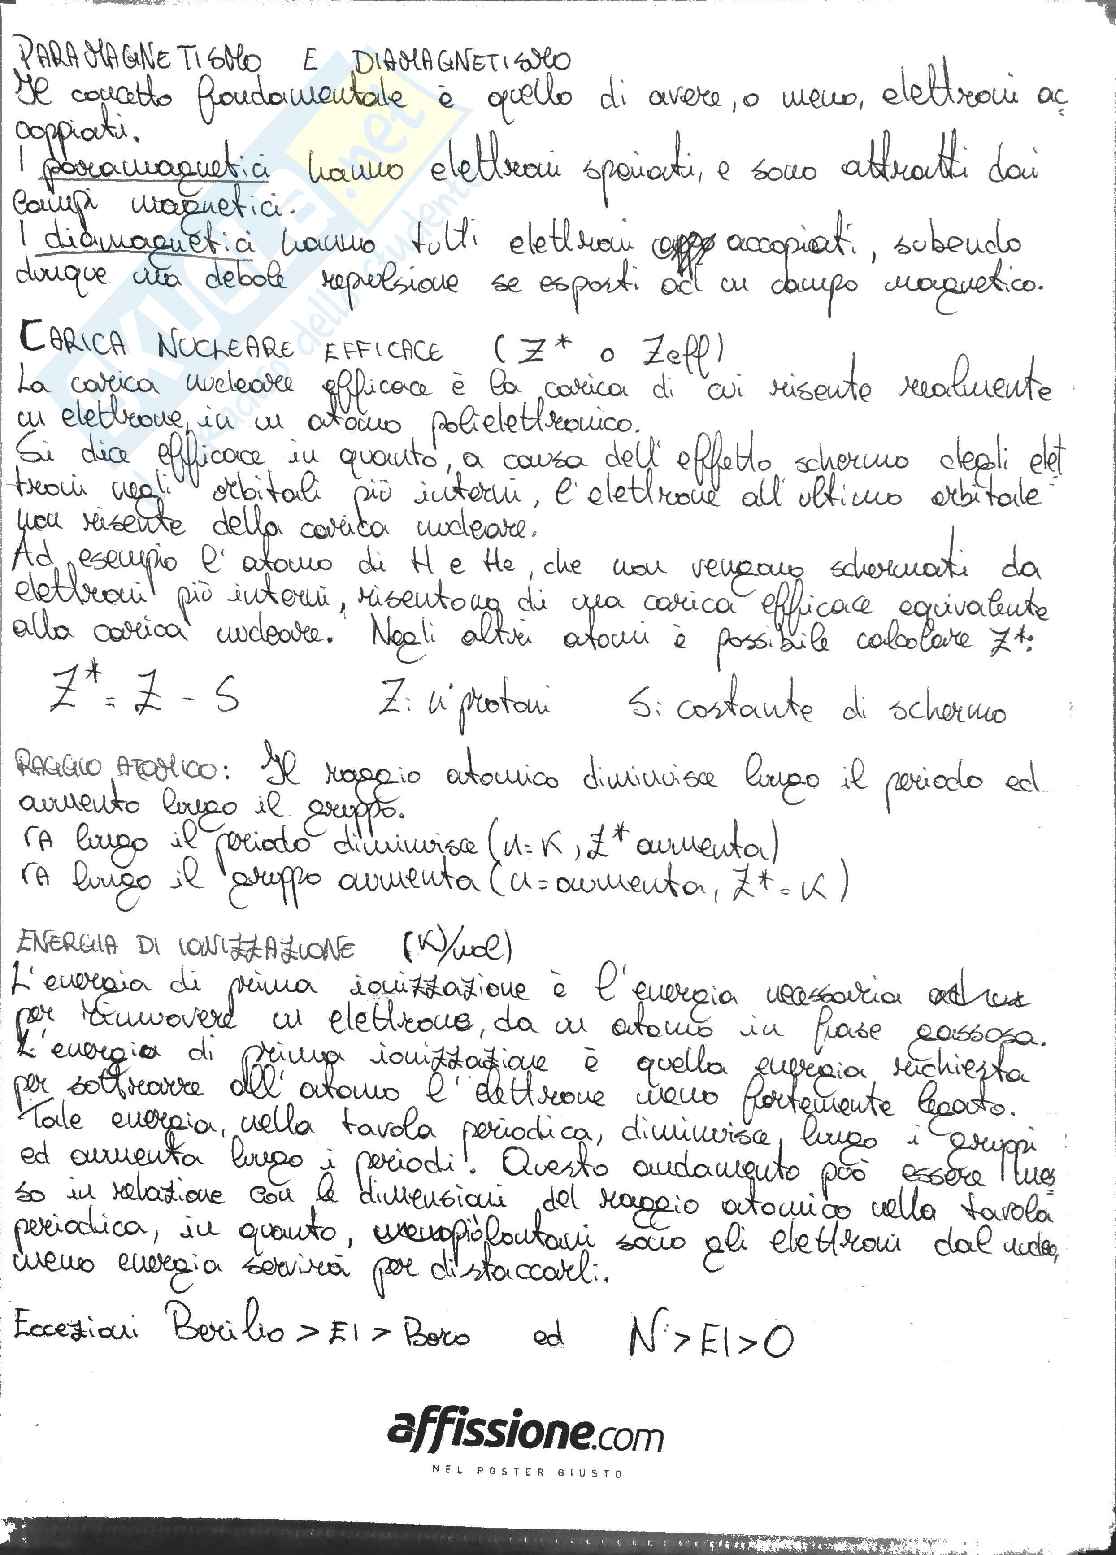 PARAMAGNETISMO E DIAMAGNETISMO
Il concetto fondamentale è quello di avere, o meno, elettroni ac
coppiati.
I paramagnetici hanno elettroni spaiati, e sono attratti dai
campi magnetici.
I diamagnetici hanno tutti elettroni accopiati, subendo
dunque una debole repulsione se esposti ad un campo magnetico.
CARICA NUCLEARE EFFICACE (Z* o Zeff)
La carica nucleare efficace è la carica di cui risente realmente
un elettrone, in un atomo polielettronico.
Si dice efficace in quanto, a causa dell'effetto schermo degli elet
troni negli orbitali più interni, l'elettrone all'ultimo orbitale
non risente della carica nucleare.
Ad esempio l'atomo di H e He, che non vengono schermati da
elettroni più interni, risentono di una carica efficace equivalente
alla carica nucleare. Negli altri atomi è possibile calcolare Z*:
Z* = Z - S Z: n° protoni S: costante di schermo
RAGGIO ATOMICO: Il raggio atomico diminuisce lungo il periodo ed
aumenta lungo il gruppo.
rA lungo il periodo diminuisce (n=K, Z* aumenta)
rA lungo il gruppo aumenta (n=aumenta, Z*=K)
ENERGIA DI IONIZZAZIONE (KJ/mol)
L'energia di prima ionizzazione è l'energia necessaria
per rimuovere un elettrone, da un atomo in fase gassosa.
L'energia di prima ionizzazione è quella energia richiesta
per sottrarre all'atomo l'elettrone meno fortemente legato.
Tale energia, nella tavola periodica, diminuisce lungo i gruppi
ed aumenta lungo i periodi. Questo andamento può essere mes
so in relazione con le dimensioni del raggio atomico nella tavola
periodica, in quanto, più lontani sono gli elettroni dal nucleo,
meno energia servirà per distaccarli.
Eccezioni Berilio > EI > Boro ed N > EI > O
affissione.com
NEL POSTER GIUSTO